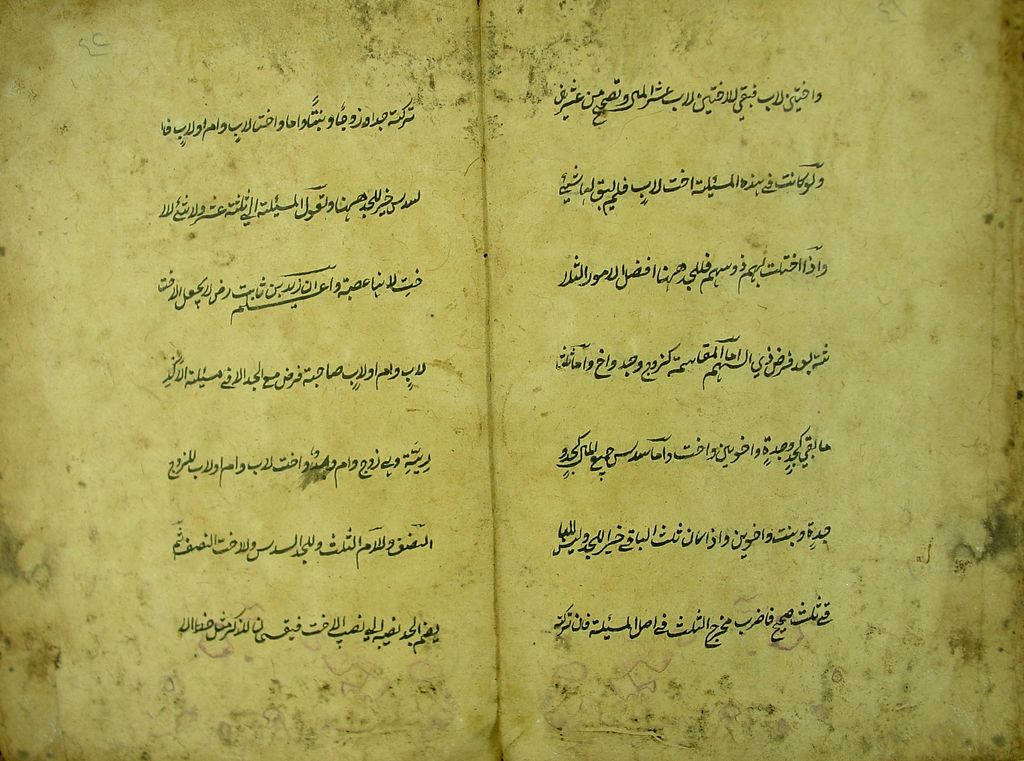 واختين لاب فبقي للاختين لاب عشر المال وتصح من عشرين
ولو كانت في هذه المسئلة اخت لاب فلم يبق لها شيئ
واذا اختلت بهم ذو سهم فللجد ههنا افضل الامور الثلا
ثة بعد فرض ذي السهم اما المقاسمة كزوج وجد واخ واما ثلث
ما بقي كجد وجدة واخوين واخت واما سدس جميع المال كجد و
جدة وبنت واخوين واذا كان ثلث الباقي خيرا للجد وليس للبا
قي ثلث صحيح فاضرب مخرج الثلث في اصل المسئلة فان تركت
تركت جدا وزوجًا وبنتًا واما واختا لاب وام او لاب فا
لسدس خير للجد ههنا وتعول المسئلة الي ثلثة عشر ولا شئ للا
خت لانها عصبة واعلم ان زيد بن ثابت رض لا يجعل الاخت
لاب وام او لاب صاحبة فرض مع الجد الا في مسئلة الاكد
رية وهي زوج وام وجد واخت لاب وام او لاب للزوج
النصف وللام الثلث وللجد السدس وللاخت النصف ثم
يضم الجد نصيبه الي نصيب الاخت فيقسمان للذكر مثل حظ الا